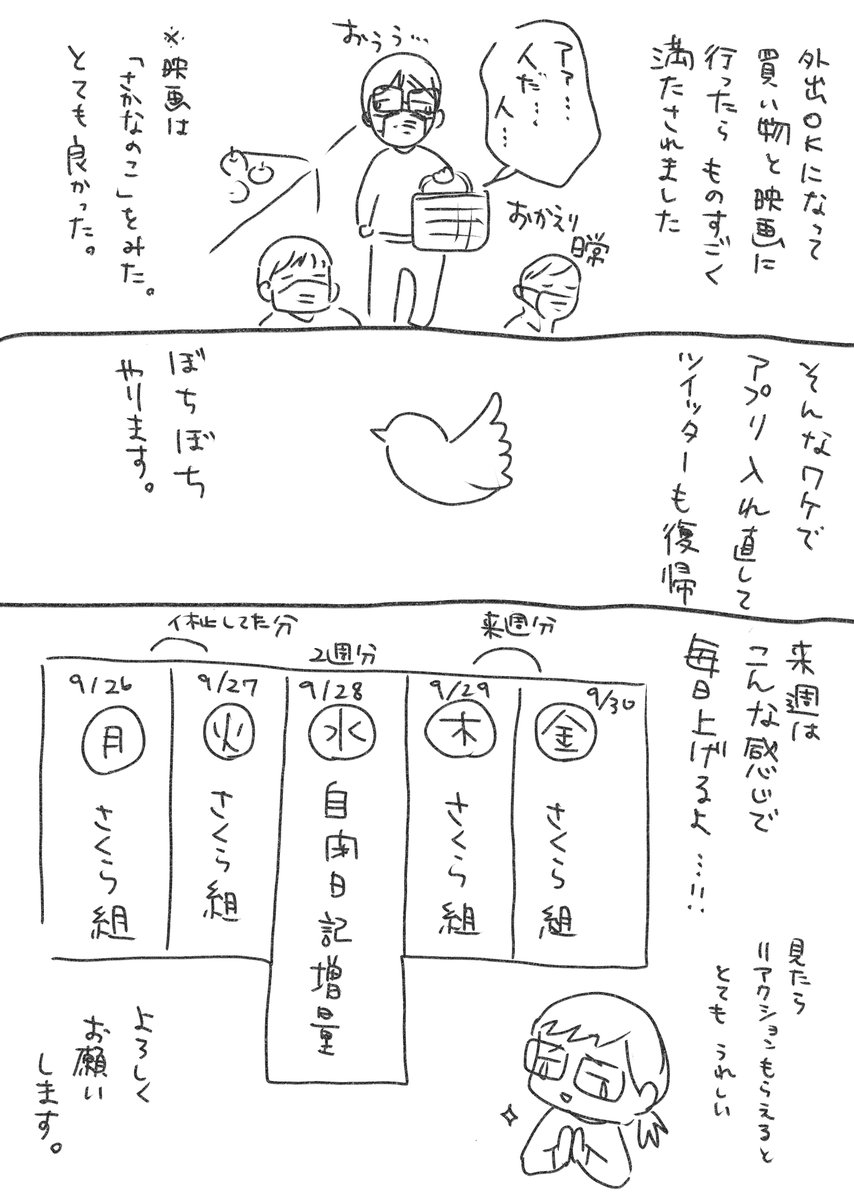 外出OKになって
買い物と映画に
行ったら ものすごく
満たされました
アァ…
人だ…
人…
おぅぅ…
おかえり
日常
※映画は
「さかなのこ」をみた。
とても良かった。
そんなワケで
アプリ入れ直して
ツイッターも復帰
ぼちぼち
やります。
来週は
こんな感じで
毎日上げるよ…!!
休止してた分
2週分
来週分
9/26
月
さくら組
9/27
火
さくら組
9/28
水
自肉日記増量
9/29
木
さくら組
9/30
金
さくら組
見たら
リアクションもらえると
とても うれしい
よろしく
お願い
します。